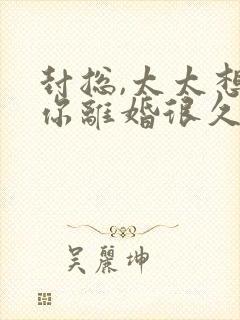 封总,太太想
你離婚很久
吴麗坤